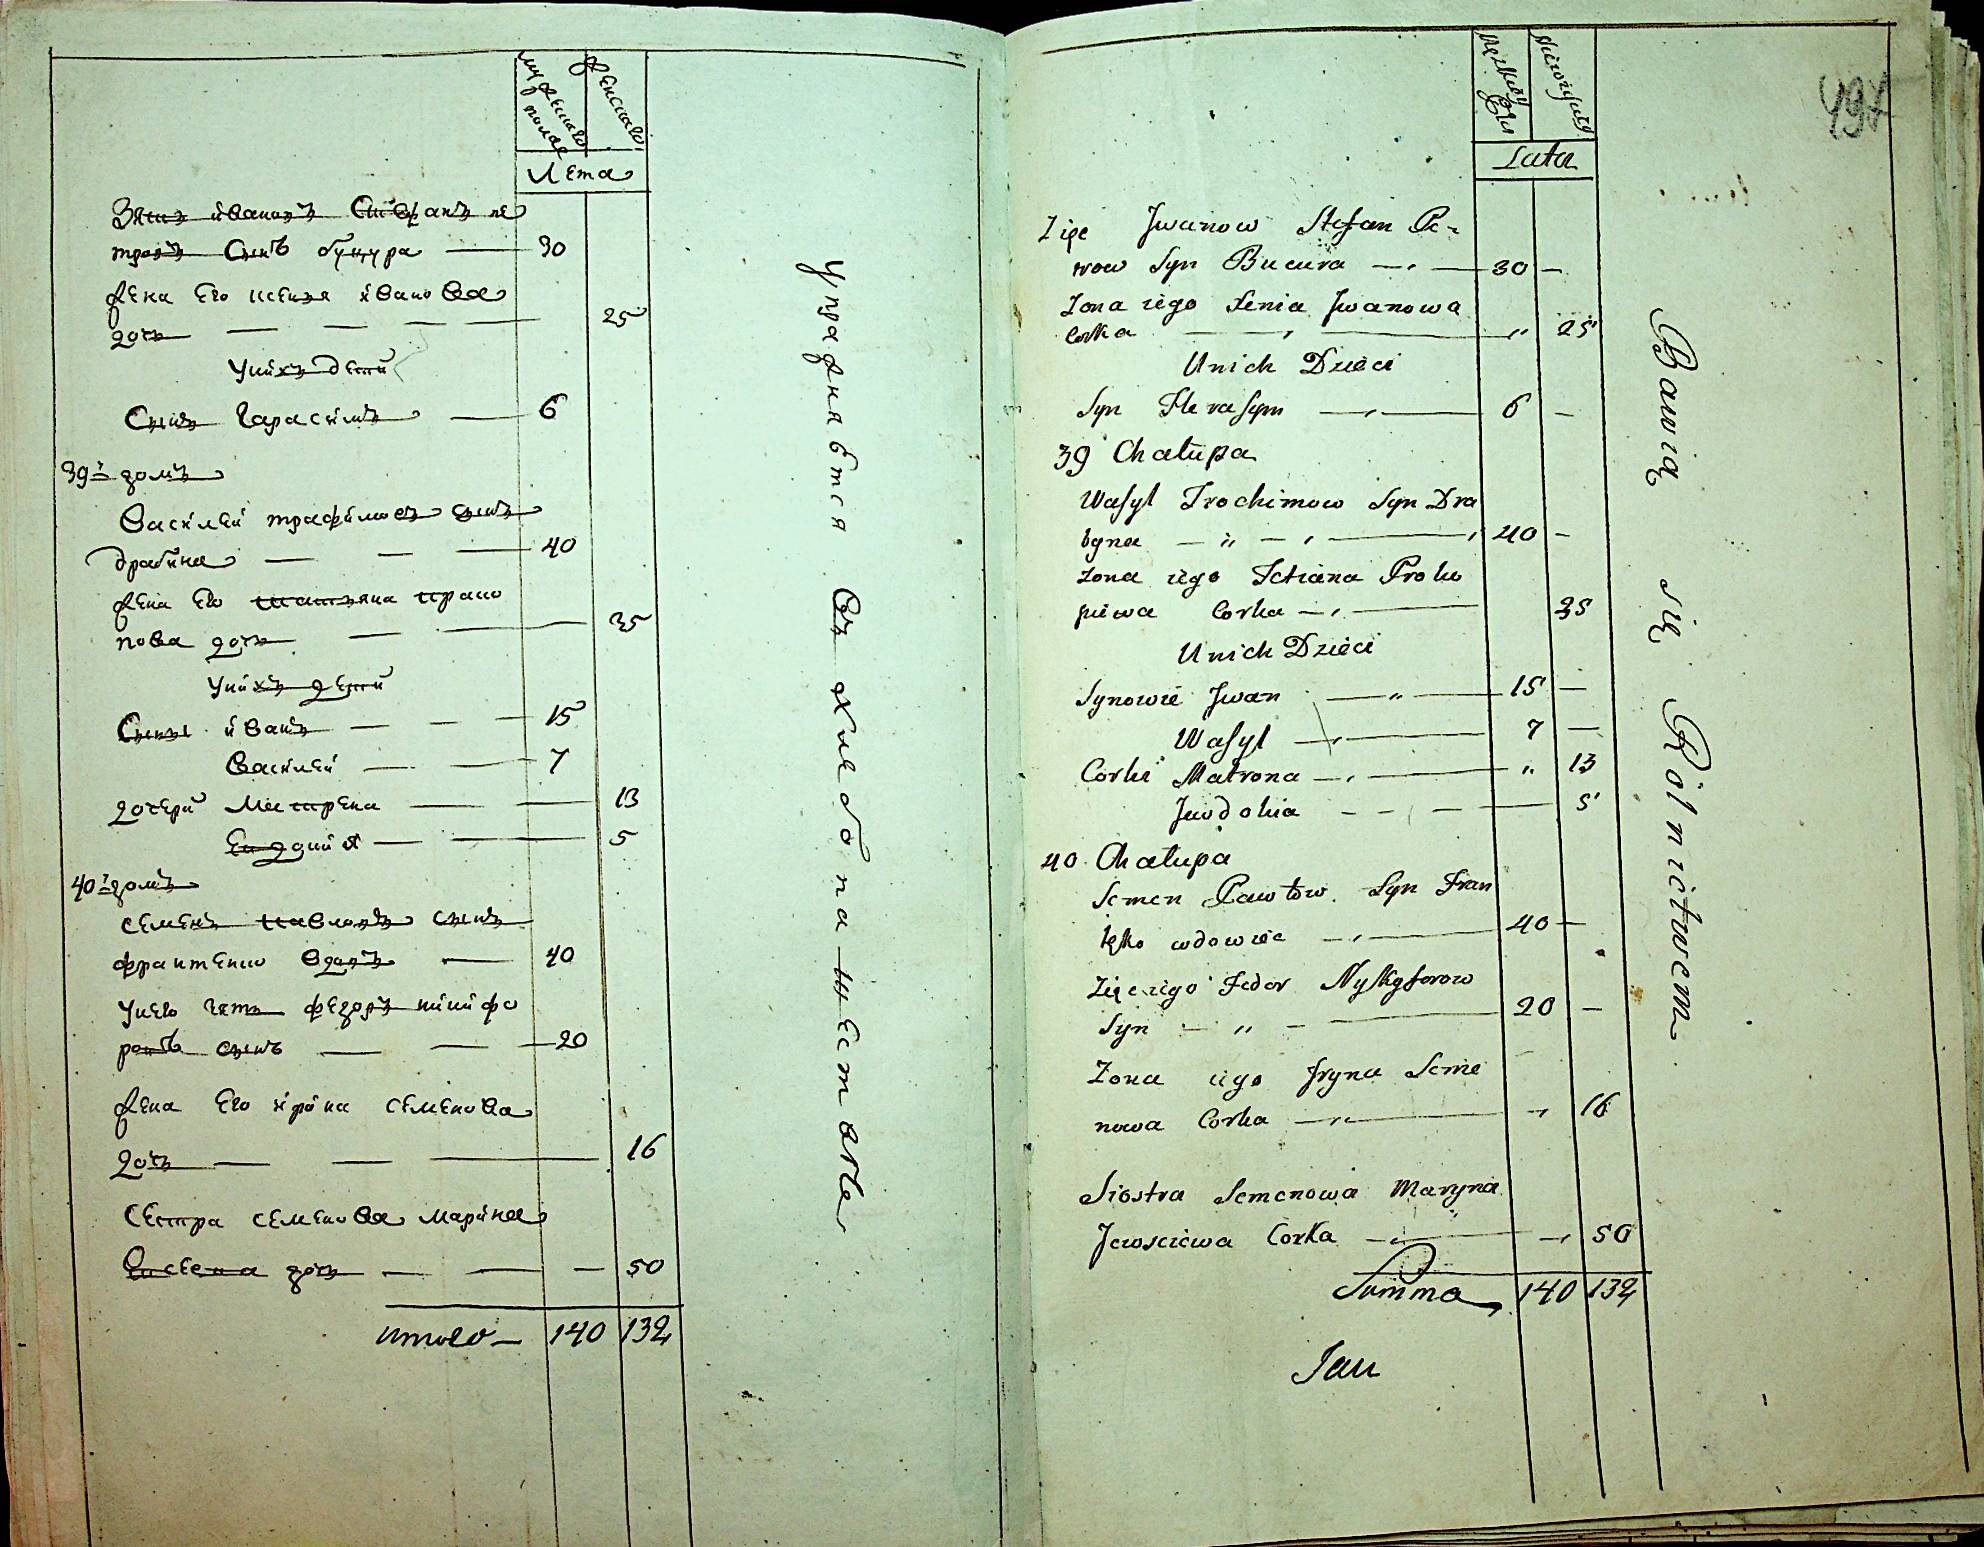 мужескаго полаженскаго
Лета
Зять ивановъ Стефанъ пе
тровъ Сынъ буцура — 30
жена Его ксенья иванова
дочь — — — 25
Унихъ дети
Сынъ Гарасимъ — 6
39й домъ
Василей трафимовъ сынъ
драбина — — — 40
жена Его татьяна прако
пова дочь — — 35
Унихъ дети
Сыны иванъ — — — 15
Василей — — 7
дочери Матрена — — 13
Евдокия — — 5
40й домъ
семенъ павловъ сынъ
франтенко вдовъ — 40
Унего зять федоръ никифо
ровъ сынъ — — — 20
жена Его ирина семенова
дочь — — — 16
Сестра семенова марина
Евсеева дочь — — — 50
Итого — 140 132
Упражняются Въ хлебопашестве
497
Męzkiey Płci
Niewiesciey
Lata
Zięć Jwanow Stefan Pe-
trow Syn Bucura — 30 —
Zona iego Xenia Jwanowa
Corka — „ 25
Unich Dzieci
Syn Herasym — 6 —
39 Chałupa
Wasyl Trochimow Syn Dra
byna — „ — 40 —
Zona iego Tetiana Proko
piewa Corka — 35
Unich Dzieci
Synowie Jwan — „ — 15 —
Wasyl — 7 —
Corki Matrona — „ 13
Jewdokia — — — 5
40 Chałupa
Semen Pawłow Syn Fran
tęko wdowiec — 40 —
Zięć iego Fedor Nykyforow
Syn — „ — 20 —
Zona iego Jryna Seme
nowa Corka — „ 16
Siostra Semenowa Maryna
Jewseiewa Corka — „ 50
Summa 140 132
Jan
Bawią się Rolnictwem